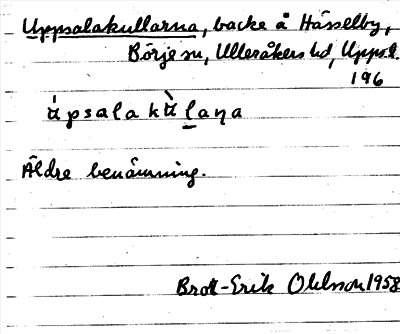 Uppsalakullarna, backe å Hässelby,
Börje sn, Ulleråkers hd, Uppsl.
196
ùpsalakùlaṇa
Äldre benämning.
Brodd-Erik Ohlsson 1958